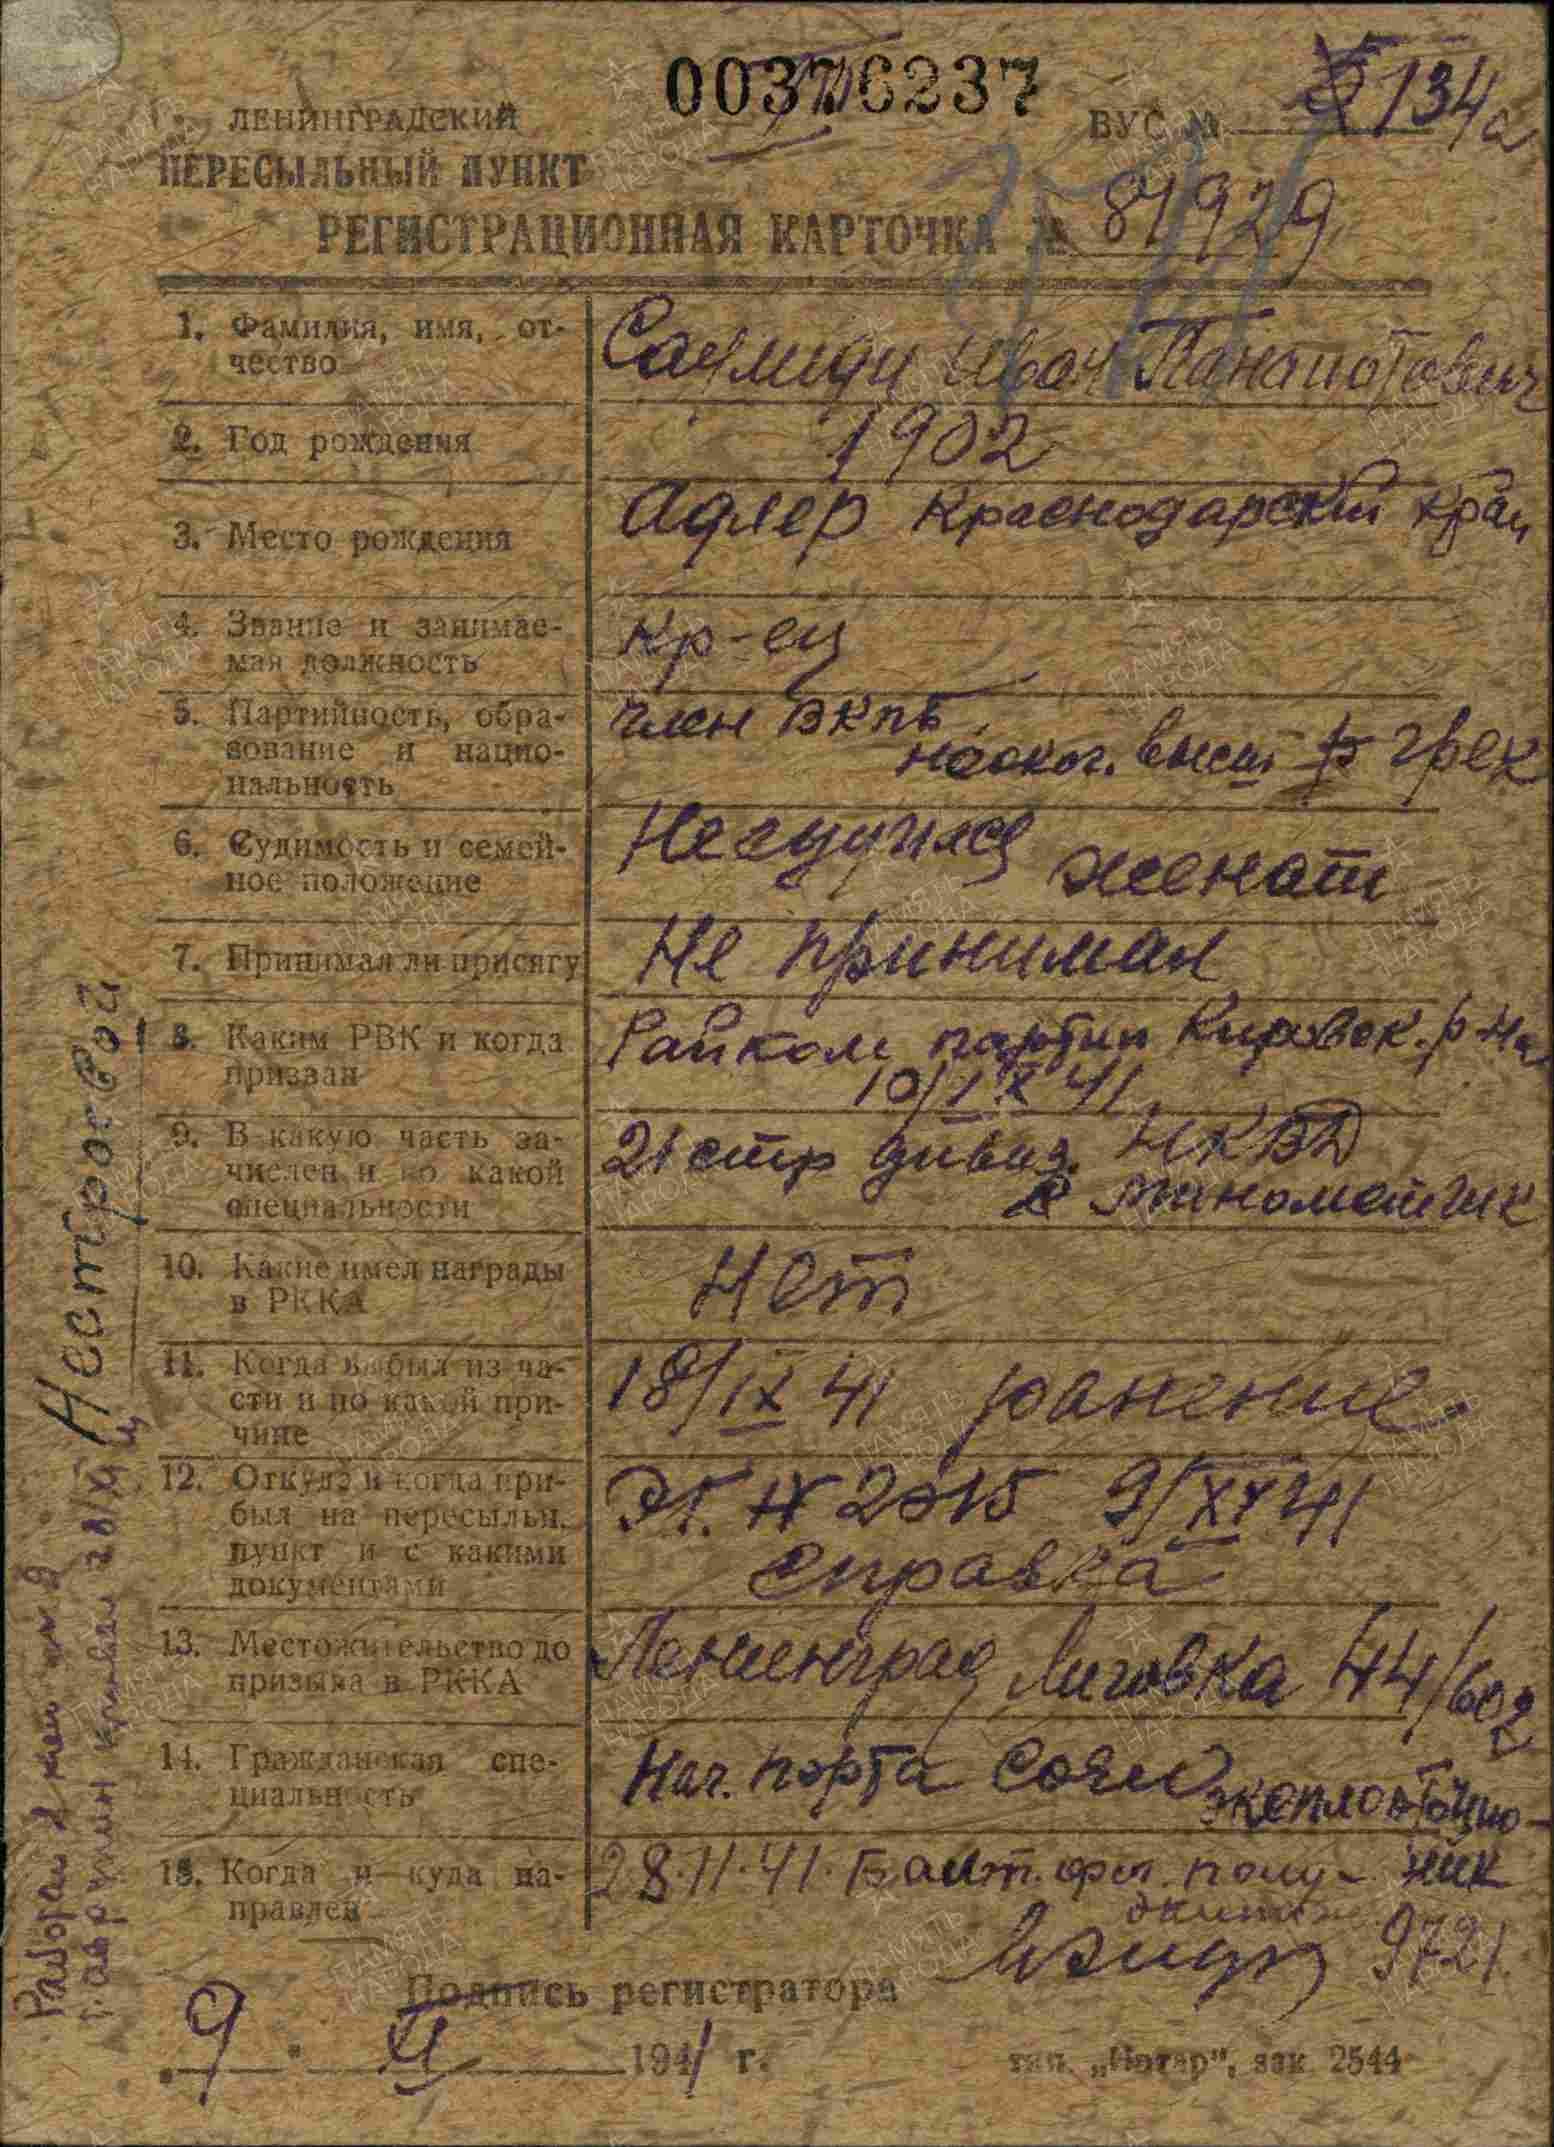 00376237
ЛЕНИНГРАДСКИЙ
ПЕРЕСЫЛЬНЫЙ ПУНКТ
ВУС № 134а
РЕГИСТРАЦИОННАЯ КАРТОЧКА № 87929
1. Фамилия, имя, от-
чество
Иван Панапотович
2. Год рождения
1902
3. Место рождения
Адлер Краснодарский край
4. Звание и занимае-
мая должность
кр-ец
5. Партийность, обра-
зование и нацио-
нальность
член ВКПБ
высш грек
6. Судимость и семей-
ное положение
Не судился женат
7. Принимал ли присягу
Не принимал
8. Каким РВК и когда
призван
Райком партии Кировск. р-на
10/IX 41
9. В какую часть за-
числен и по какой
специальности
21 стр дивиз. НКВД
минометчик
10. Какие имел награды
в РККА
Нет
11. Когда выбыл из ча-
сти и по какой при-
чине
18/IX 41 ранение
12. Откуда и когда при-
был на пересыльн.
пункт и с какими
документами
ЭГ. № 2015 9/XI 41
справка
13. Местожительство до
призыва в РККА
Ленинград Лиговка 44/602
14. Гражданская спе-
циальность
Нач. порта
эксплоатацио-
ник
15. Когда и куда на-
правлен
28.11.41. Балт. фл. полу-
экипаж
9721.
Подпись регистратора
9 XI 1941 г.
тип. „Котар", зак 2544
28/XI 41